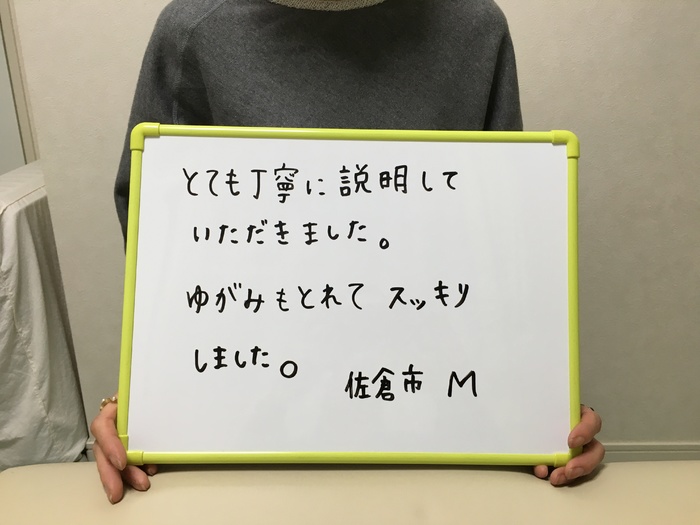 とても丁寧に説明して
いただきました。
ゆがみもとれて スッキリ
しました。
佐倉市 M